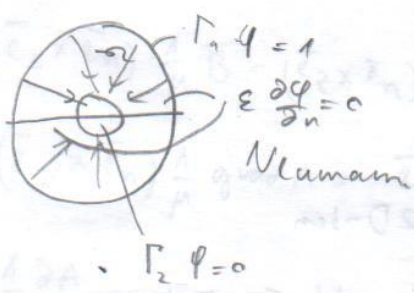 Γ₁ φ = 1
ε ∂φ/∂n = 0
Neumann
Γ₂ φ = 0